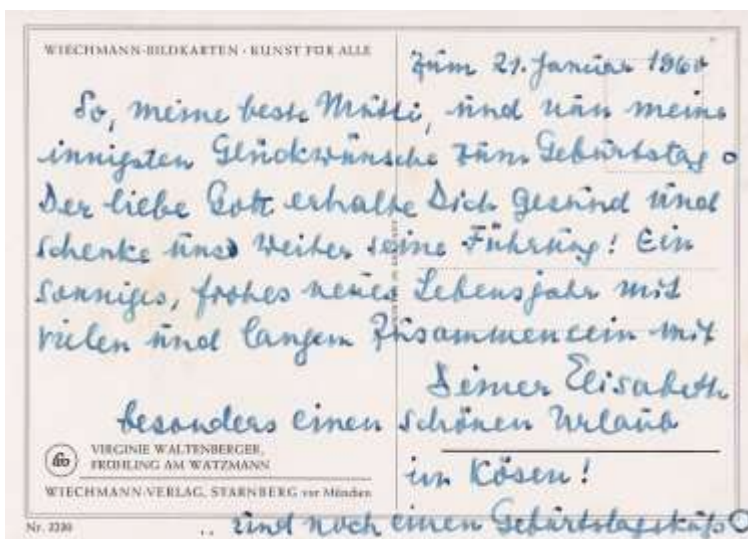 WIECHMANN-BILDKARTEN · KUNST FÜR ALLE
Zum 21. Januar 1960
So, meine beste Mutti, und nun meine
innigsten Glückwünsche zum Geburtstag
Der liebe Gott erhalte Dich gesund und
schenke uns weiter seine Führung! Ein
sonniges, frohes neues Lebensjahr mit
vielen und langem Zusammensein mit
Deiner Elisabeth
besonders einen schönen Urlaub
in Kösen!
.. und noch einen Geburtstagskuß
VIRGINIE WALTENBERGER,
FRÜHLING AM WATZMANN
WIECHMANN-VERLAG, STARNBERG vor München
Nr. 2230